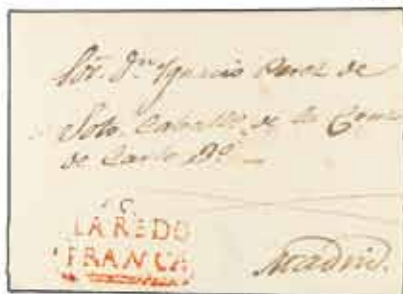 Sor. Dn. Ignacio Perez de
Soto Caballo. de la Cruz
de Carlos 3o.
LAREDO
FRANCA
Madrid.